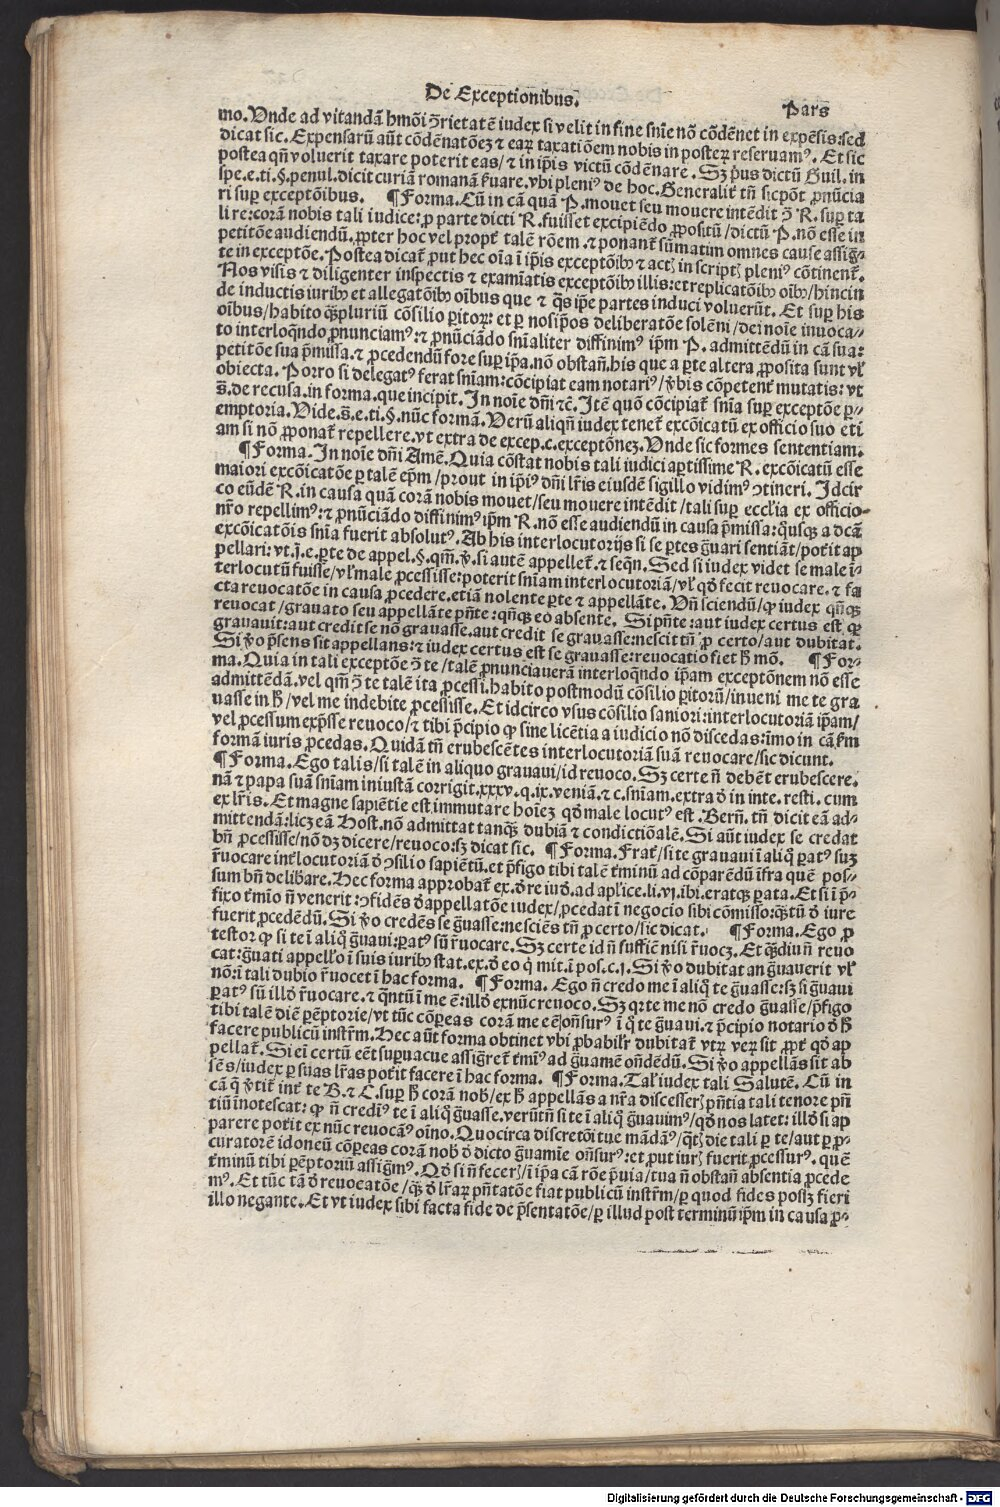 De Exceptionibus.
Pars
mo. Vnde ad vitandā hmōi ꝯrietatē iudex si velit in fine snīe nō cōdēnet in expēsis: sed
dicat sic. Expensarū aūt cōdēnatōez ⁊ eaꝝ taxatiōem nobis in posterꝝ reseruamꝰ. Et sic
postea qñ voluerit taxare poterit eas/ ⁊ in ip̄is victū cōdēnare. Sꝫ p̄us dictū Guil. in
spe. e. ti. §. penul. dicit curiā romanā ẜuare. vbi pleniꝰ de hoc. Generalit̄ tñ sic pōt ꝓnūcia
ri suꝑ exceptōibus. ¶Forma. Cū in cā quā P. mouet seu mouere intēdit ꝯ R. suꝑ ta
li re: corā nobis tali iudice: ꝓ parte dicti R. fuisset excipiēdo ꝓpositū/ dictū P. nō esse in
petitōe audiendū. ꝓpter hoc vel propt̄ talē rōem. ⁊ ponant̄ sūmatim omnes cause assig-
te in exceptōe. Postea dicat̄ ꝓut hec oīa ī ip̄is exceptōibꝫ ⁊ act̄ in script̄ pleniꝰ cōtinent̄.
Nos visis ⁊ diligenter inspectis ⁊ examīatis exceptōibꝫ illis: et replicatōibꝫ oībꝫ/ hincin
de inductis iuribꝫ et allegatōibꝫ oībus que ⁊ q̄s ip̄e partes induci voluerūt. Et suꝑ his
oībus/ habito qꝫpluriū cōsilio ꝑitoꝝ: et ꝑ nosip̄os deliberatōe solēni/ dei noīe inuoca-
to interloqn̄do ꝓnunciamꝰ: ⁊ ꝓnūciādo snīaliter diffinimꝰ ip̄m P. admittēdū in cā sua:
petitōe sua p̄missa. ⁊ ꝓcedendū fore suꝑ ip̄a. nō obstañ. his que a ꝑte altera ꝓposita sunt vł
obiecta. Porro si delegatꝰ ferat snīam: cōcipiat eam notariꝰ/ v̄bis cōpetent̄ mutatis: vt
s̄. de recusa. in forma. que incipit. In noīe dn̄i ⁊c̄. Itē quō cōcipiat̄ snīa suꝑ exceptōe ꝑ-
emptoria. Vide. s̄. e. ti. §. nūc formā. Verū aliqn̄ iudex tenet̄ excōicatū ex officio suo eti
am si nō ꝓponat̄ repellere. vt extra de excep. c. exceptōnez. Vnde sic formes sententiam.
¶Forma. In noīe dn̄i Amē. Quia cōstat nobis tali iudici aꝑtissime R. excōicatū esse
maiori excōicatōe ꝑ talē ep̄m/ prout in ip̄iꝰ dn̄i l̄ris eiusdē sigillo vidimꝰ ꝯtineri. Idcir
co eūdē R. in causa quā corā nobis mouet/ seu mouere intēdit/ tali suꝑ eccl̄ia ex officio-
nr̄o repellimꝰ: ⁊ ꝓnūciādo diffinimꝰ ip̄m R. nō esse audiendū in causa p̄missa: qūsqꝫ a dcā
excōicatōis snīa fuerit absolutꝰ. Ab his interlocutorijs si se ꝑtes g̈uari sentiāt/ pot̄it ap
pellari: vt. j̄. e. ꝑte de appel. §. qm̄. v̄. si autē appellet̄. ⁊ seqn̄. Sed si iudex videt se male ī-
terlocutū fuisse/ vł male ꝓcessisse: poterit snīam interlocutoriā/ vł qd̄ fecit reuocare. ⁊ fa
cta reuocatōe in causa ꝓcedere. etiā nolente ꝑte ⁊ appellāte. Vñ sciendū/ ꝙ iudex qn̄qꝫ
reuocat/ grauato seu appellāte pn̄te: qn̄qꝫ eo absente. Si pn̄te: aut iudex certus est ꝙ
grauauit: aut credit se nō grauasse. aut credit se grauasse: nescit tñ ꝓ certo/ aut dubitat.
Si v̄o p̄sens sit appellans: ⁊ iudex certus est se grauasse: reuocatio fiet h̄ mō. ¶For-
ma. Quia in tali exceptōe ꝯ te/ talē ꝓnunciauerā interloqn̄do ip̄am exceptōnem nō esse
admittēdā. vel qm̄ ꝯ te talē ita ꝓcessi. habito postmodū cōsilio ꝑitorū/ inueni me te gra
uasse in h̄/ vel me indebite ꝓcessisse. Et idcirco vsus cōsilio saniori: interlocutoriā ip̄am/
vel ꝓcessum exp̄sse reuoco/ ⁊ tibi p̄cipio ꝙ sine licētia a iudicio nō discedas: īmo in cā ẜm
formā iuris ꝓcedas. Quidā tñ erubescētes interlocutoriā suā reuocare/ sic dicunt.
¶Forma. Ego talis/ si talē in aliquo grauaui/ id reuoco. Sꝫ certe ñ debēt erubescere.
nā ⁊ papa suā snīam iniustā corrigit. xxxv. q. ix. veniā. ⁊ c. snīam. extra d̄ in inte. resti. cum
ex l̄ris. Et magne sapiētie est immutare hoīez qd̄ male locutꝰ est. Berñ. tñ dicit eā ad-
mittendā: licꝫ eā Host. nō admittat tanqꝫ dubiā ⁊ condictiōalē. Si aūt iudex se credat
bñ ꝓcessisse/ nō dꝫ dicere/ reuoco: sꝫ dicat sic. ¶Forma. Frat̄/ si te grauaui ī aliq̄ ꝑatꝰ suꝫ
r̄uocare int̄locutoriā d̄ ꝯsilio sapiētū. et p̄figo tibi talē t̄minū ad cōparēdū īfra quē pos-
sum bñ delibare. Hec forma approbat̄ ex. d̄ re iud̄. ad apl̄ice. li. vj. ibi. eratqꝫ ꝑata. Et si ī p̄-
fixo t̄mīo ñ venerit: ꝯfidēs d̄ appellatōe iudex/ ꝓcedat ī negocio sibi cōmisso: qꝫtū d̄ iure
fuerit ꝓcedēdū. Si v̄o credēs se g̈uasse: nesciēs tñ ꝓ certo/ sic dicat. ¶Forma. Ego ꝓ
testor ꝙ si te ī aliq̄ g̈uaui: ꝑatꝰ sū r̄uocare. Sꝫ certe id ñ suffic̄ nisi r̄uocꝫ. Et qꝫdiu ñ reuo
cat: g̈uati appello ī suis iuribꝫ stat. ex. d̄ eo q̄ mit. ī pos. c. j. Si v̄o dubitat an g̈uauerit vł
nō: ī tali dubio r̄uocet ī hac forma. ¶Forma. Ego ñ credo me ī aliq̄ te g̈uasse: sꝫ si g̈uaui
ꝑatꝰ sū illd̄ r̄uocare. ⁊ qn̄tū ī me ē: illd̄ ex nūc reuoco. Sꝫ qꝛ te me nō credo g̈uasse/ p̄figo
tibi talē diē ꝑēptorie/ vt tūc cōpeas corā me eē oñsurꝰ ī q̄ te g̈uaui. ⁊ p̄cipio notario d̄ h̄
facere publicū instr̄m. Hec aūt forma obtinet vbi ꝓbabilr̄ dubitat̄ vtꝝ veꝝ sit ꝓpt̄ qd̄ ap
pellat̄. Si eī certū eēt suꝑuacue assig̈ret̄ t̄mīꝰ ad g̈uamē oñdēdū. Si v̄o appellās sit ab
sēs/ iudex ꝑ suas l̄ras pot̄it facere ī hac forma. ¶Forma. Tal̄ iudex tali Salutē. Cū in
cā q̄ v̄tit̄ int̄ te B. ⁊ C. suꝑ h̄ corā nob̄/ ex h̄ appellās a nr̄a discesser̄/ pñtia tali tenore pñ
tiū īnotescat: ꝙ ñ credīꝰ te ī aliq̄ g̈uasse. verūtñ si te ī aliq̄ g̈uauimꝰ/ qd̄ nos latet: illd̄ si ap
parere pot̄it ex nūc reuocamꝰ oīno. Quocirca discretōi tue mādāꝰ/ qt̄ꝫ die tali ꝑ te/ aut ꝑ ꝓ-
curatorē idoneū cōpeas corā nob̄ d̄ dicto g̈uamīe oñsurꝰ: et ꝓut iur̄ fuerit ꝓcessurꝰ. quē
t̄minū tibi ꝑēptoriū assig̈mꝰ. Qd̄ si ñ fecer̄/ ī ip̄a cā rōe p̄uia/ tua ñ obstañ absentia ꝓcede
mꝰ. Et tūc tā d̄ reuocatōe/ qꝫ d̄ l̄raꝝ pn̄tatōe fiat publicū instr̄m/ ꝑ quod fides possꝫ fieri
illo negante. Et vt iudex sibi facta fide de p̄sentatōe/ ꝑ illud post terminū ip̄m in causa ꝓ-
Digitalisierung gefördert durch die Deutsche Forschungsgemeinschaft - DFG